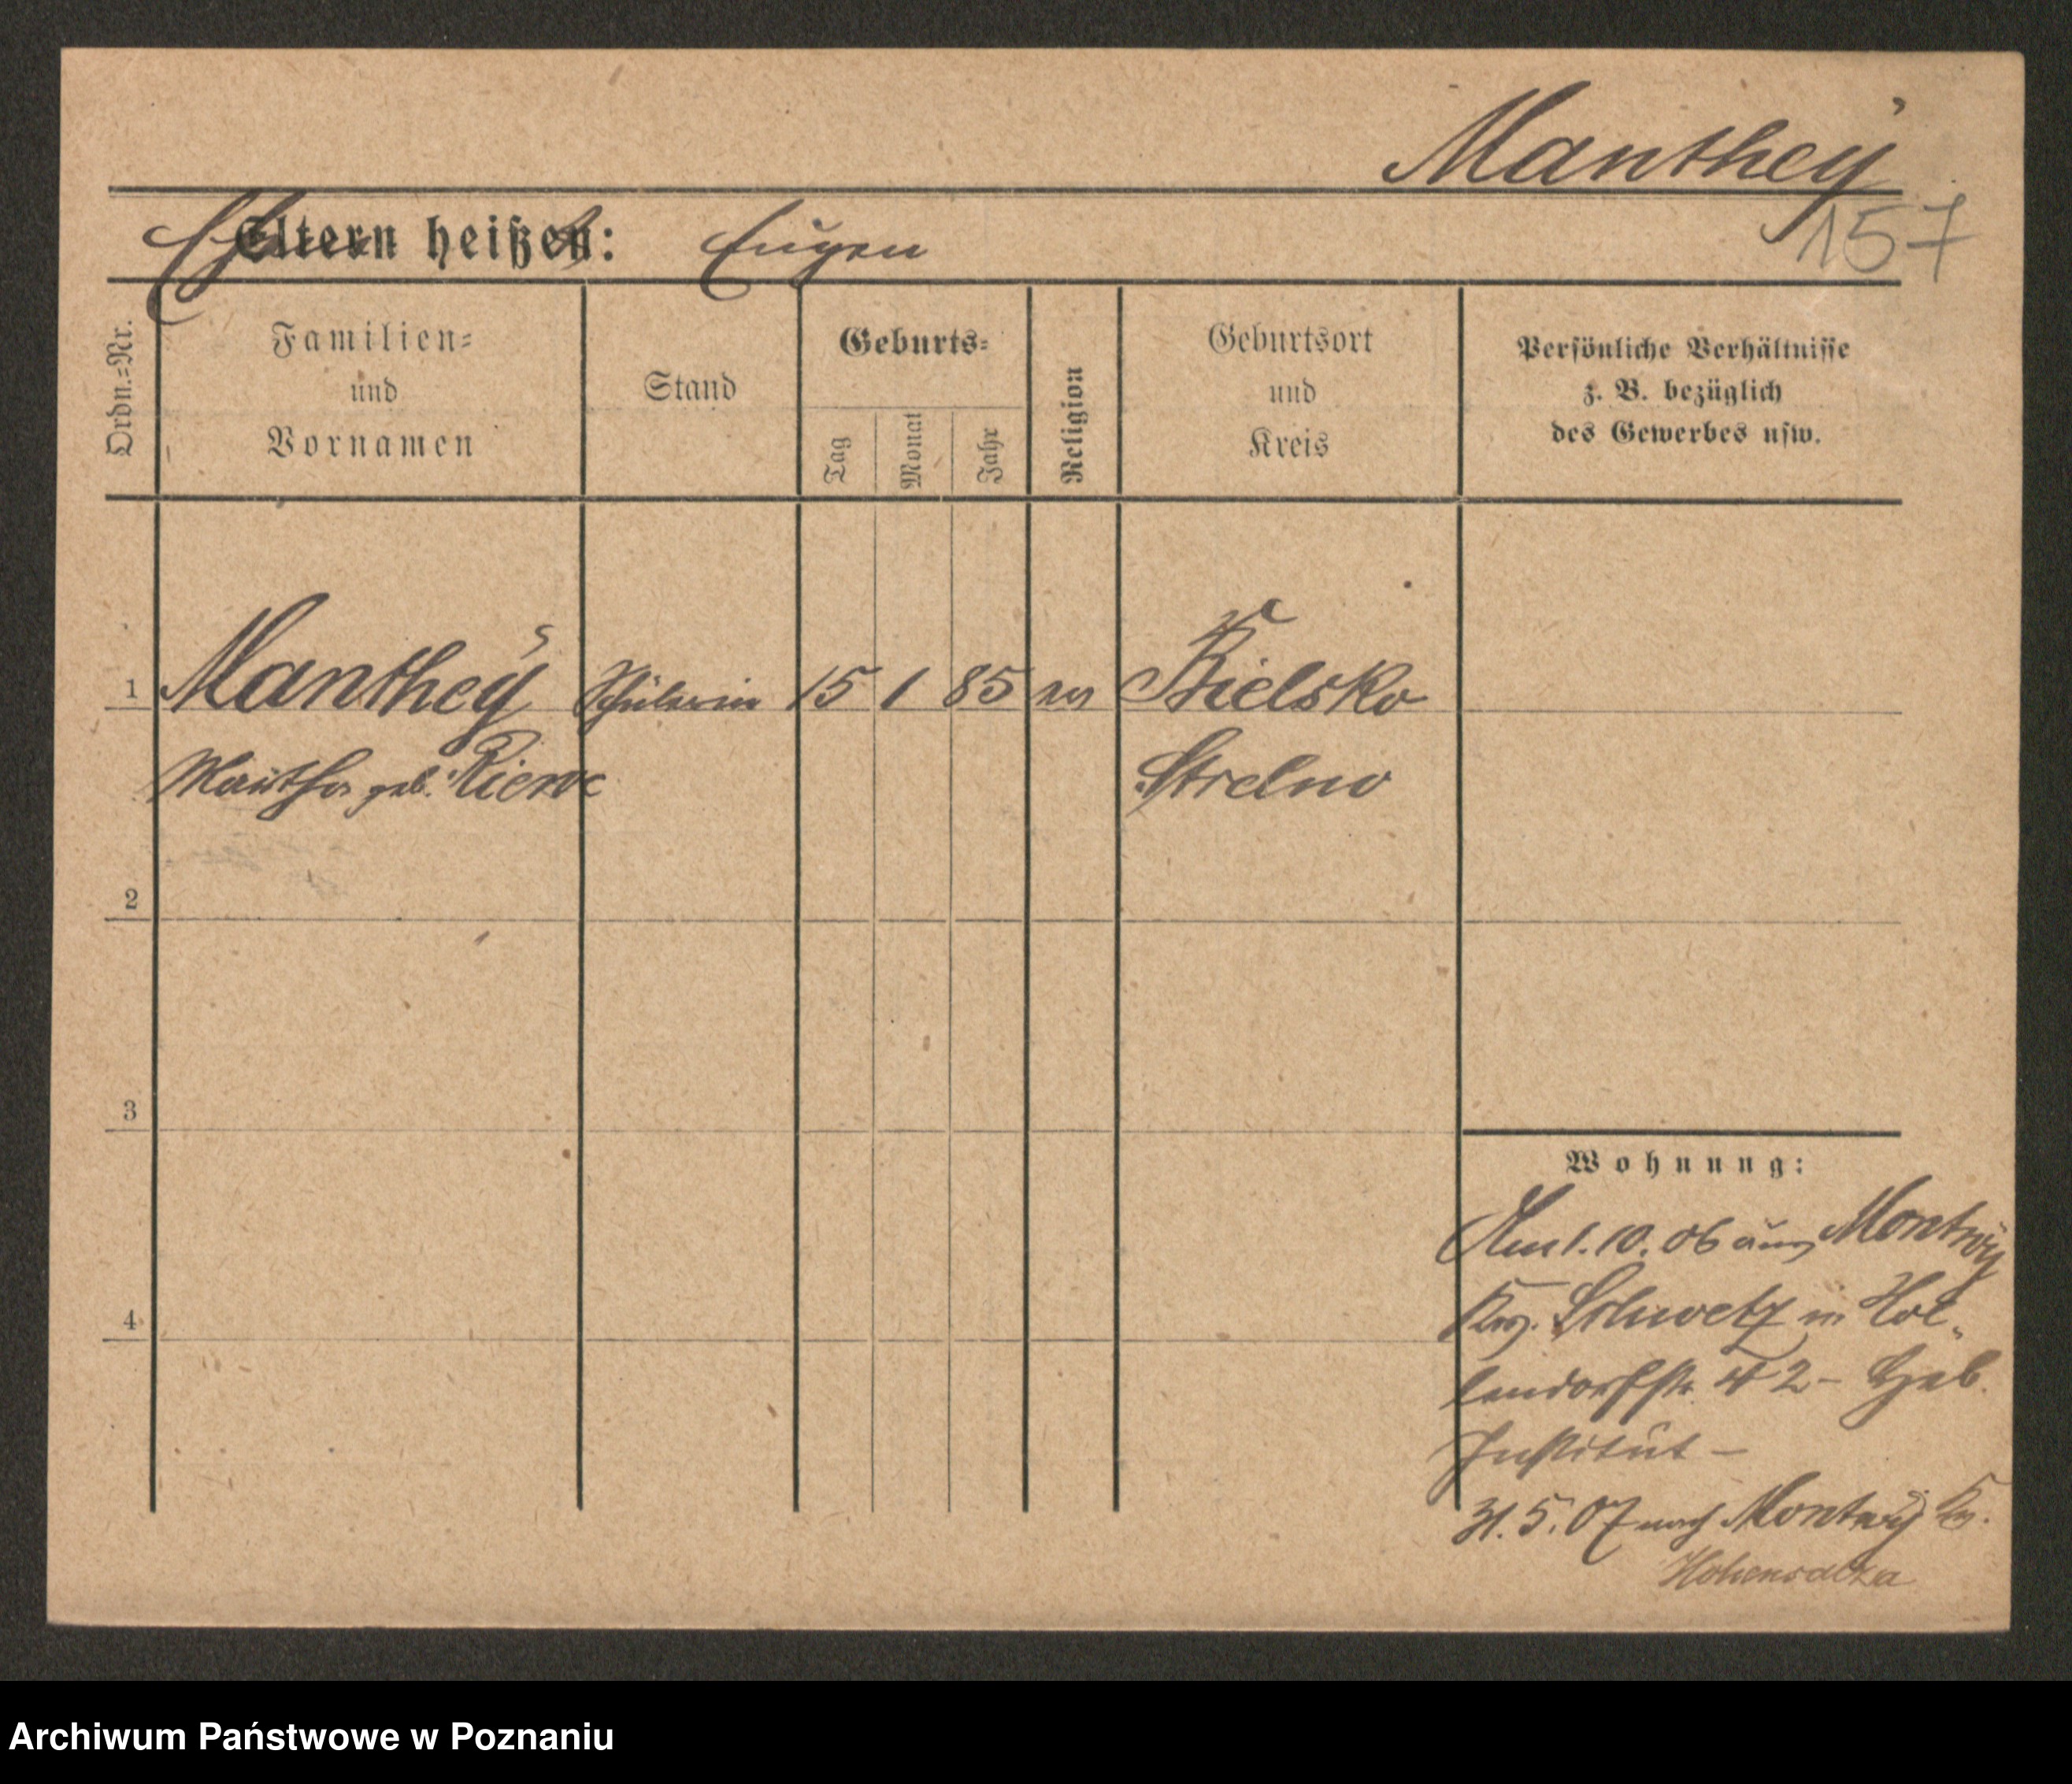 Manthey
157
Eltern heißen: Eugen
Ordn.-Nr.
Familien-
und
Vornamen
Stand
Geburts-
Tag
Monat
Jahr
Religion
Geburtsort
und
Kreis
Persönliche Verhältnisse
z. B. bezüglich
des Gewerbes usw.
1 Manthey Schülerin 15 1 85 ev Bielsko
geb. Strelno
2
3
4
Wohnung:
Am 1. 10. 06 aus Montwy
Krs. Schwetz in Hol-
lendorfstr. 42 - Heb.
Institut -
31. 5. 07 nach Montwy Kr.
Hohensalza
Archiwum Państwowe w Poznaniu